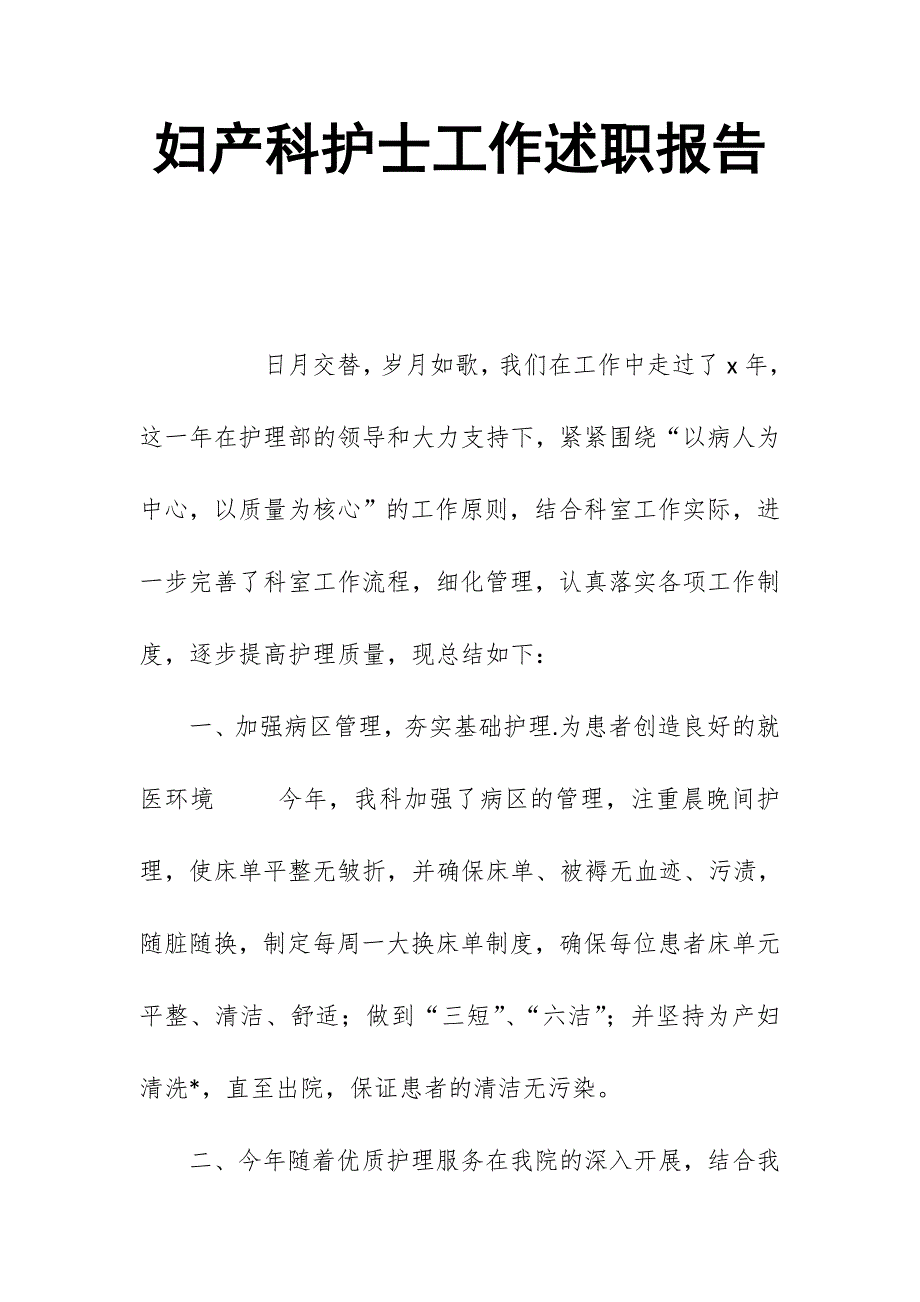 妇产科护士工作述职报告
日月交替，岁月如歌，我们在工作中走过了 x 年，
这一年在护理部的领导和大力支持下，紧紧围绕“以病人为
中心，以质量为核心”的工作原则，结合科室工作实际，进
一步完善了科室工作流程，细化管理，认真落实各项工作制
度，逐步提高护理质量，现总结如下：
一、加强病区管理，夯实基础护理.为患者创造良好的就
医环境 今年，我科加强了病区的管理，注重晨晚间护
理，使床单平整无皱折，并确保床单、被褥无血迹、污渍，
随脏随换，制定每周一大换床单制度，确保每位患者床单元
平整、清洁、舒适；做到“三短”、“六洁”；并坚持为产妇
清洗*，直至出院，保证患者的清洁无污染。
二、今年随着优质护理服务在我院的深入开展，结合我